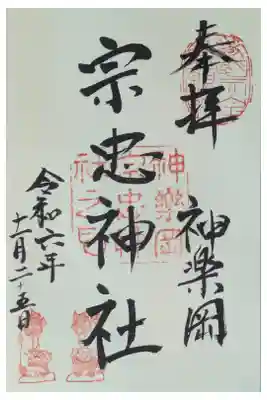 奉拝
神楽岡
宗忠神社
神樂岡
宗忠神
社之印
令和六年
十一月二十五日